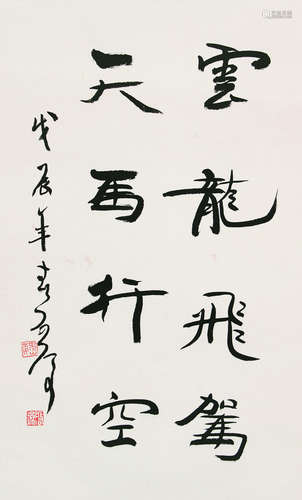 雲龍飛駕
天馬行空
戊辰年春